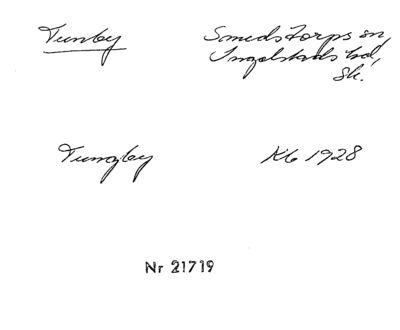 Tunby
Smedstorps sn,
Ingelstads hd,
Sk.
Tungby
Kb 1928
Nr 21719